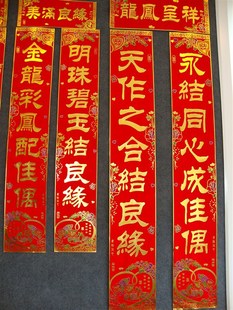 美滿良緣
龍鳳呈祥
永結同心成佳偶
天作之合結良緣
明珠碧玉結良緣
金龍彩鳳配佳偶